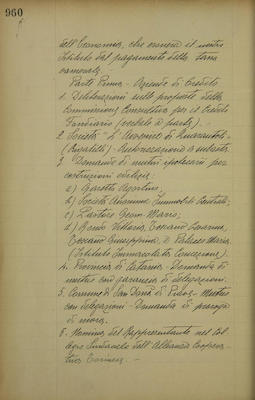 960
dell'Economia, che esonera il nostro
Istituto dal pagamento della tassa
camerale.
Parte Prima - Aziende di Credito
1. Deliberazioni sulle proposte della
Commissione Consultiva per il Credito
Fondiario (verbale a parte). -
2. Società "L'
- Autorizzazione a
3. Domande di mutui ipotecari per
costruzioni edilizie:
a) Agostino;
b) Società Anonima Immobili Centrali;
c) Gian Marco;
d) Vittorio,
Giuseppina, e Maria,
(Istituto Immacolata Concezione).
4. Provincia di Catania - Domanda di
mutuo con garanzia di delegazioni.
5. Comune di San Donà di Piave - Mutuo
con delegazioni - Domanda di proroga
di mora.
6. Nomina del Rappresentante nel Col-
legio Sindacale dell'Alleanza Coopera-
tiva Torinese. -